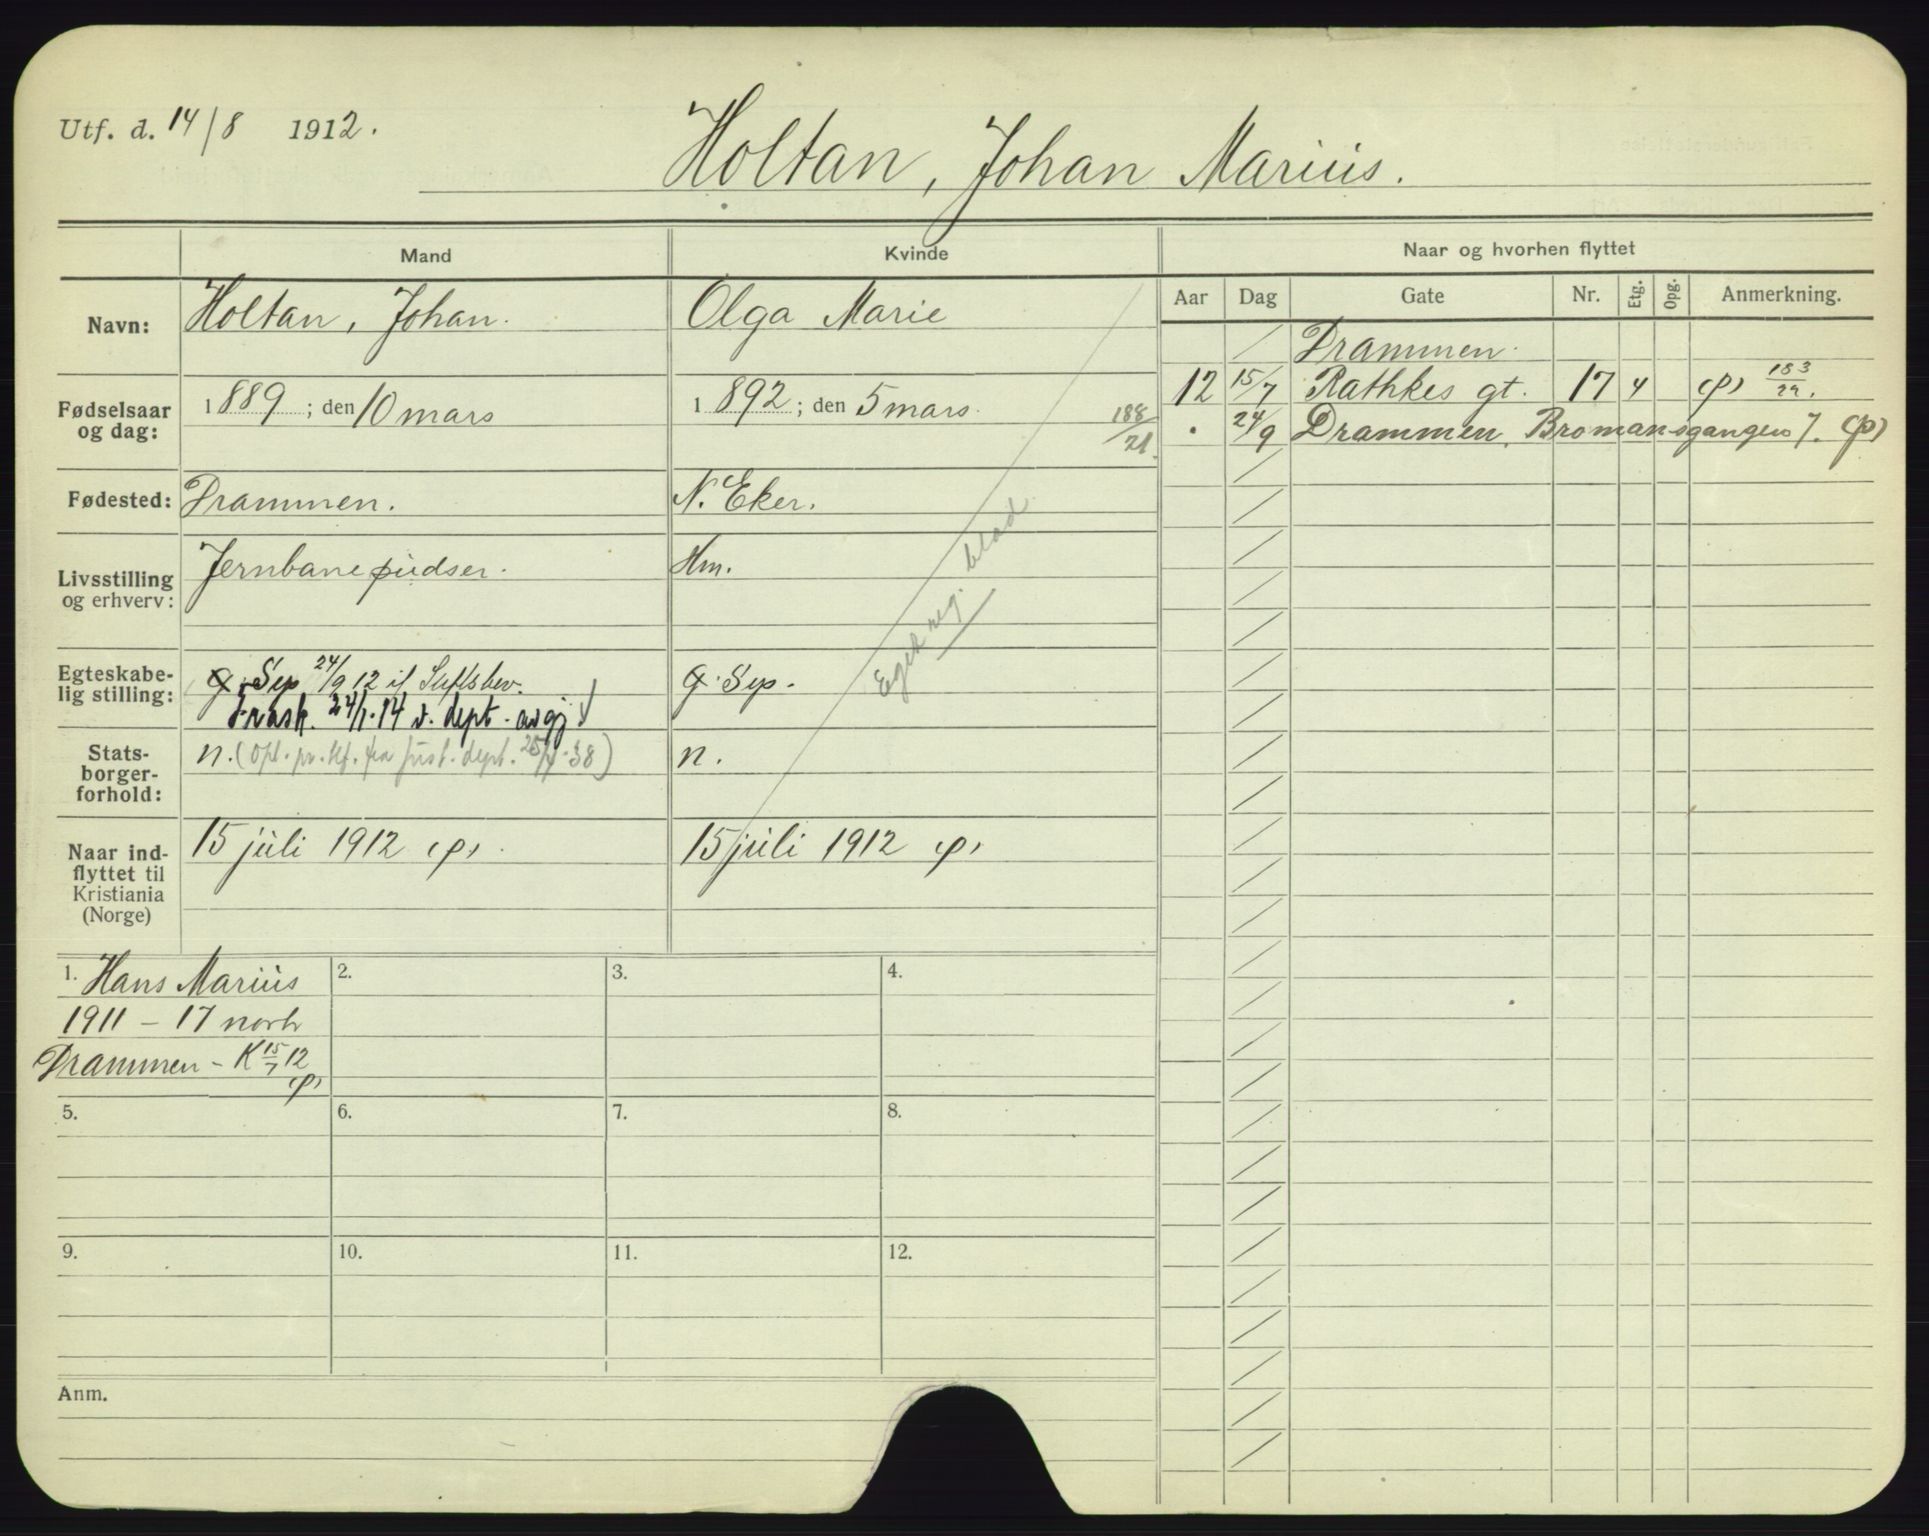 Utf. d. 14/8 1912.
Holtan, Johan Marius.
Mand
Kvinde
Naar og hvorhen flyttet
Aar Dag Gate Nr. Etg. Opg. Anmerkning.
Navn:
Holtan, Johan.
Olga Marie
Fødselsaar og dag:
1889; den 10 mars
1892; den 5 mars
188/21.
Fødested:
Drammen.
N. Eker.
Livsstilling og erhverv:
Jernbanepudser.
Hm.
Egteskabe-
lig stilling:
g. Sep 24/9 12 if Stiftsbev.
Frask. 24/1-14 v. dept. avgj
g. Sep.
Stats-
borger-
forhold:
n. (Opl. pr. tlf. fra just. dept. 38)
n.
Naar ind-
flyttet til
Kristiania
(Norge)
15 juli 1912 (p)
15 juli 1912 (p)
Eget reg. blad
Drammen.
12 15/7 Rathkes gt. 17 4 (p) 183/22.
" 24/9 Drammen, Bromansgangen 7. (p)
1. Hans Marius
1911 - 17 novbr
Drammen - K 15/7 12
(p)
2.
3.
4.
5.
6.
7.
8.
9.
10.
11.
12.
Anm.